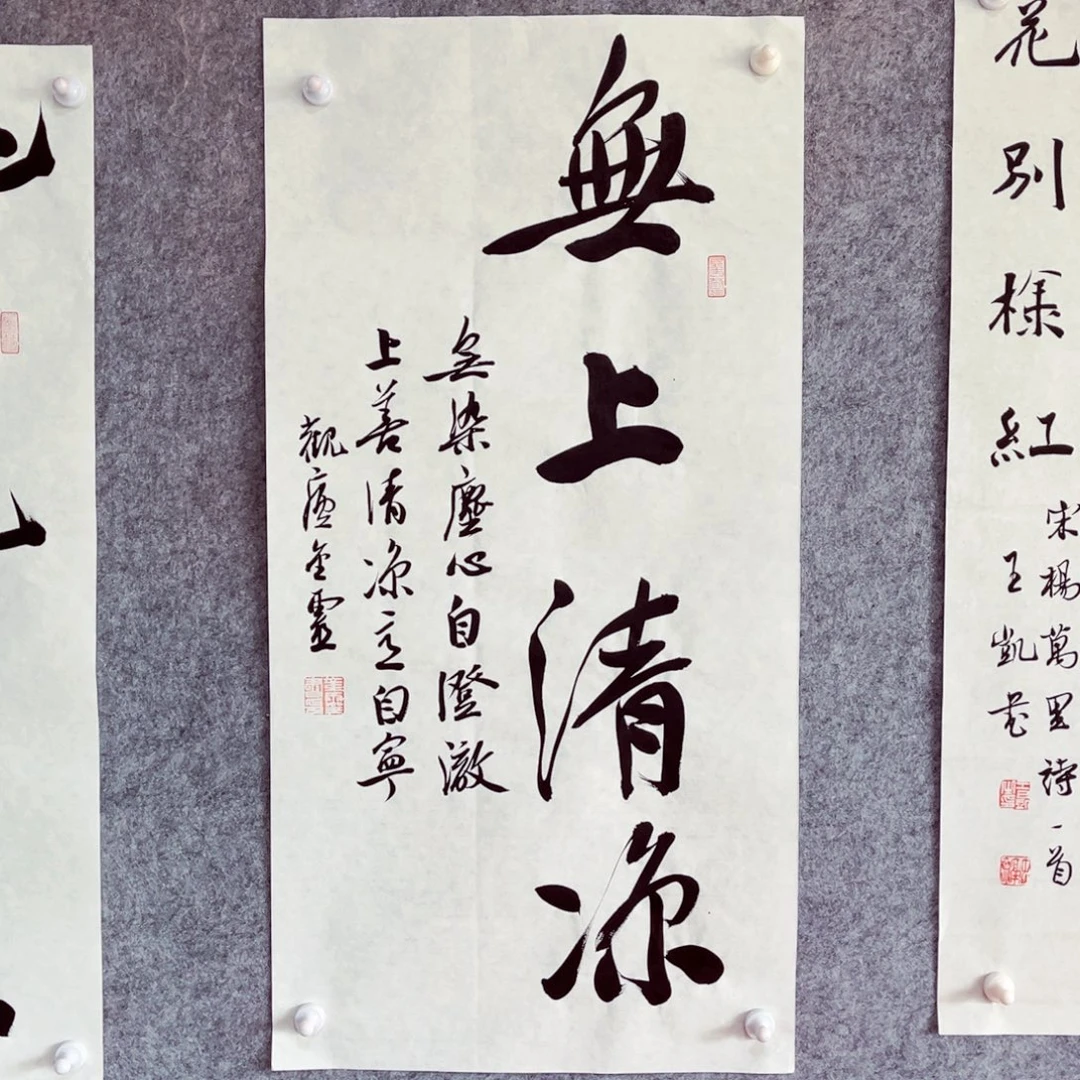 花別樣紅
宋楊萬里詩一首
王凱書
無上清涼
無染塵心自澄澈
上善清涼意自寧
觀廬金靈